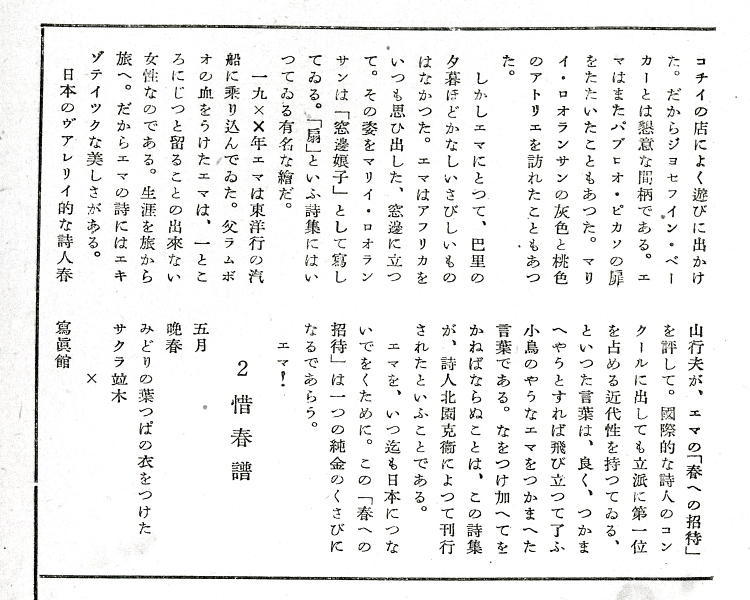 コチイの店によく遊びに出かけ
た。だからジヨセフイン・ベー
カーとは懇意な間柄である。エ
マはまたパブロオ・ピカソの扉
をたたいたこともあつた。マリ
イ・ロオランサンの灰色と桃色
のアトリエを訪れたこともあつ
た。
しかしエマにとつて、巴里の
夕暮ほどかなしいさびしいもの
はなかつた。エマはアフリカを
いつも思ひ出した、窓邊に立つ
て。その姿をマリイ・ロオラン
サンは「窓邊娘子」として寫し
てゐる。「扇」といふ詩集にはい
つてゐる有名な繪だ。
一九××年エマは東洋行の汽
船に乘り込んでゐた。父ラムボ
オの血をうけたエマは、一とこ
ろにじつと留ることの出來ない
女性なのである。生涯を旅から
旅へ。だからエマの詩にはエキ
ゾテイツクな美しさがある。
日本のヴアレリイ的な詩人春
山行夫が、エマの「春への招待」
を評して。國際的な詩人のコン
クールに出しても立派に第一位
を占める近代性を持つてゐる、
といつた言葉は、良く、つかま
へやうとすれば飛び立つて了ふ
小鳥のやうなエマをつかまへた
言葉である。なをつけ加へてを
かねばならぬことは、この詩集
が、詩人北園克衞によつて刊行
されたといふことである。
エマを、いつ迄も日本につな
いでをくために。この「春への
招待」は一つの純金のくさびに
なるであらう。
エマ！
2 惜春譜
五月
晩春
みどりの葉つぱの衣をつけた
サクラ竝木
×
寫眞館